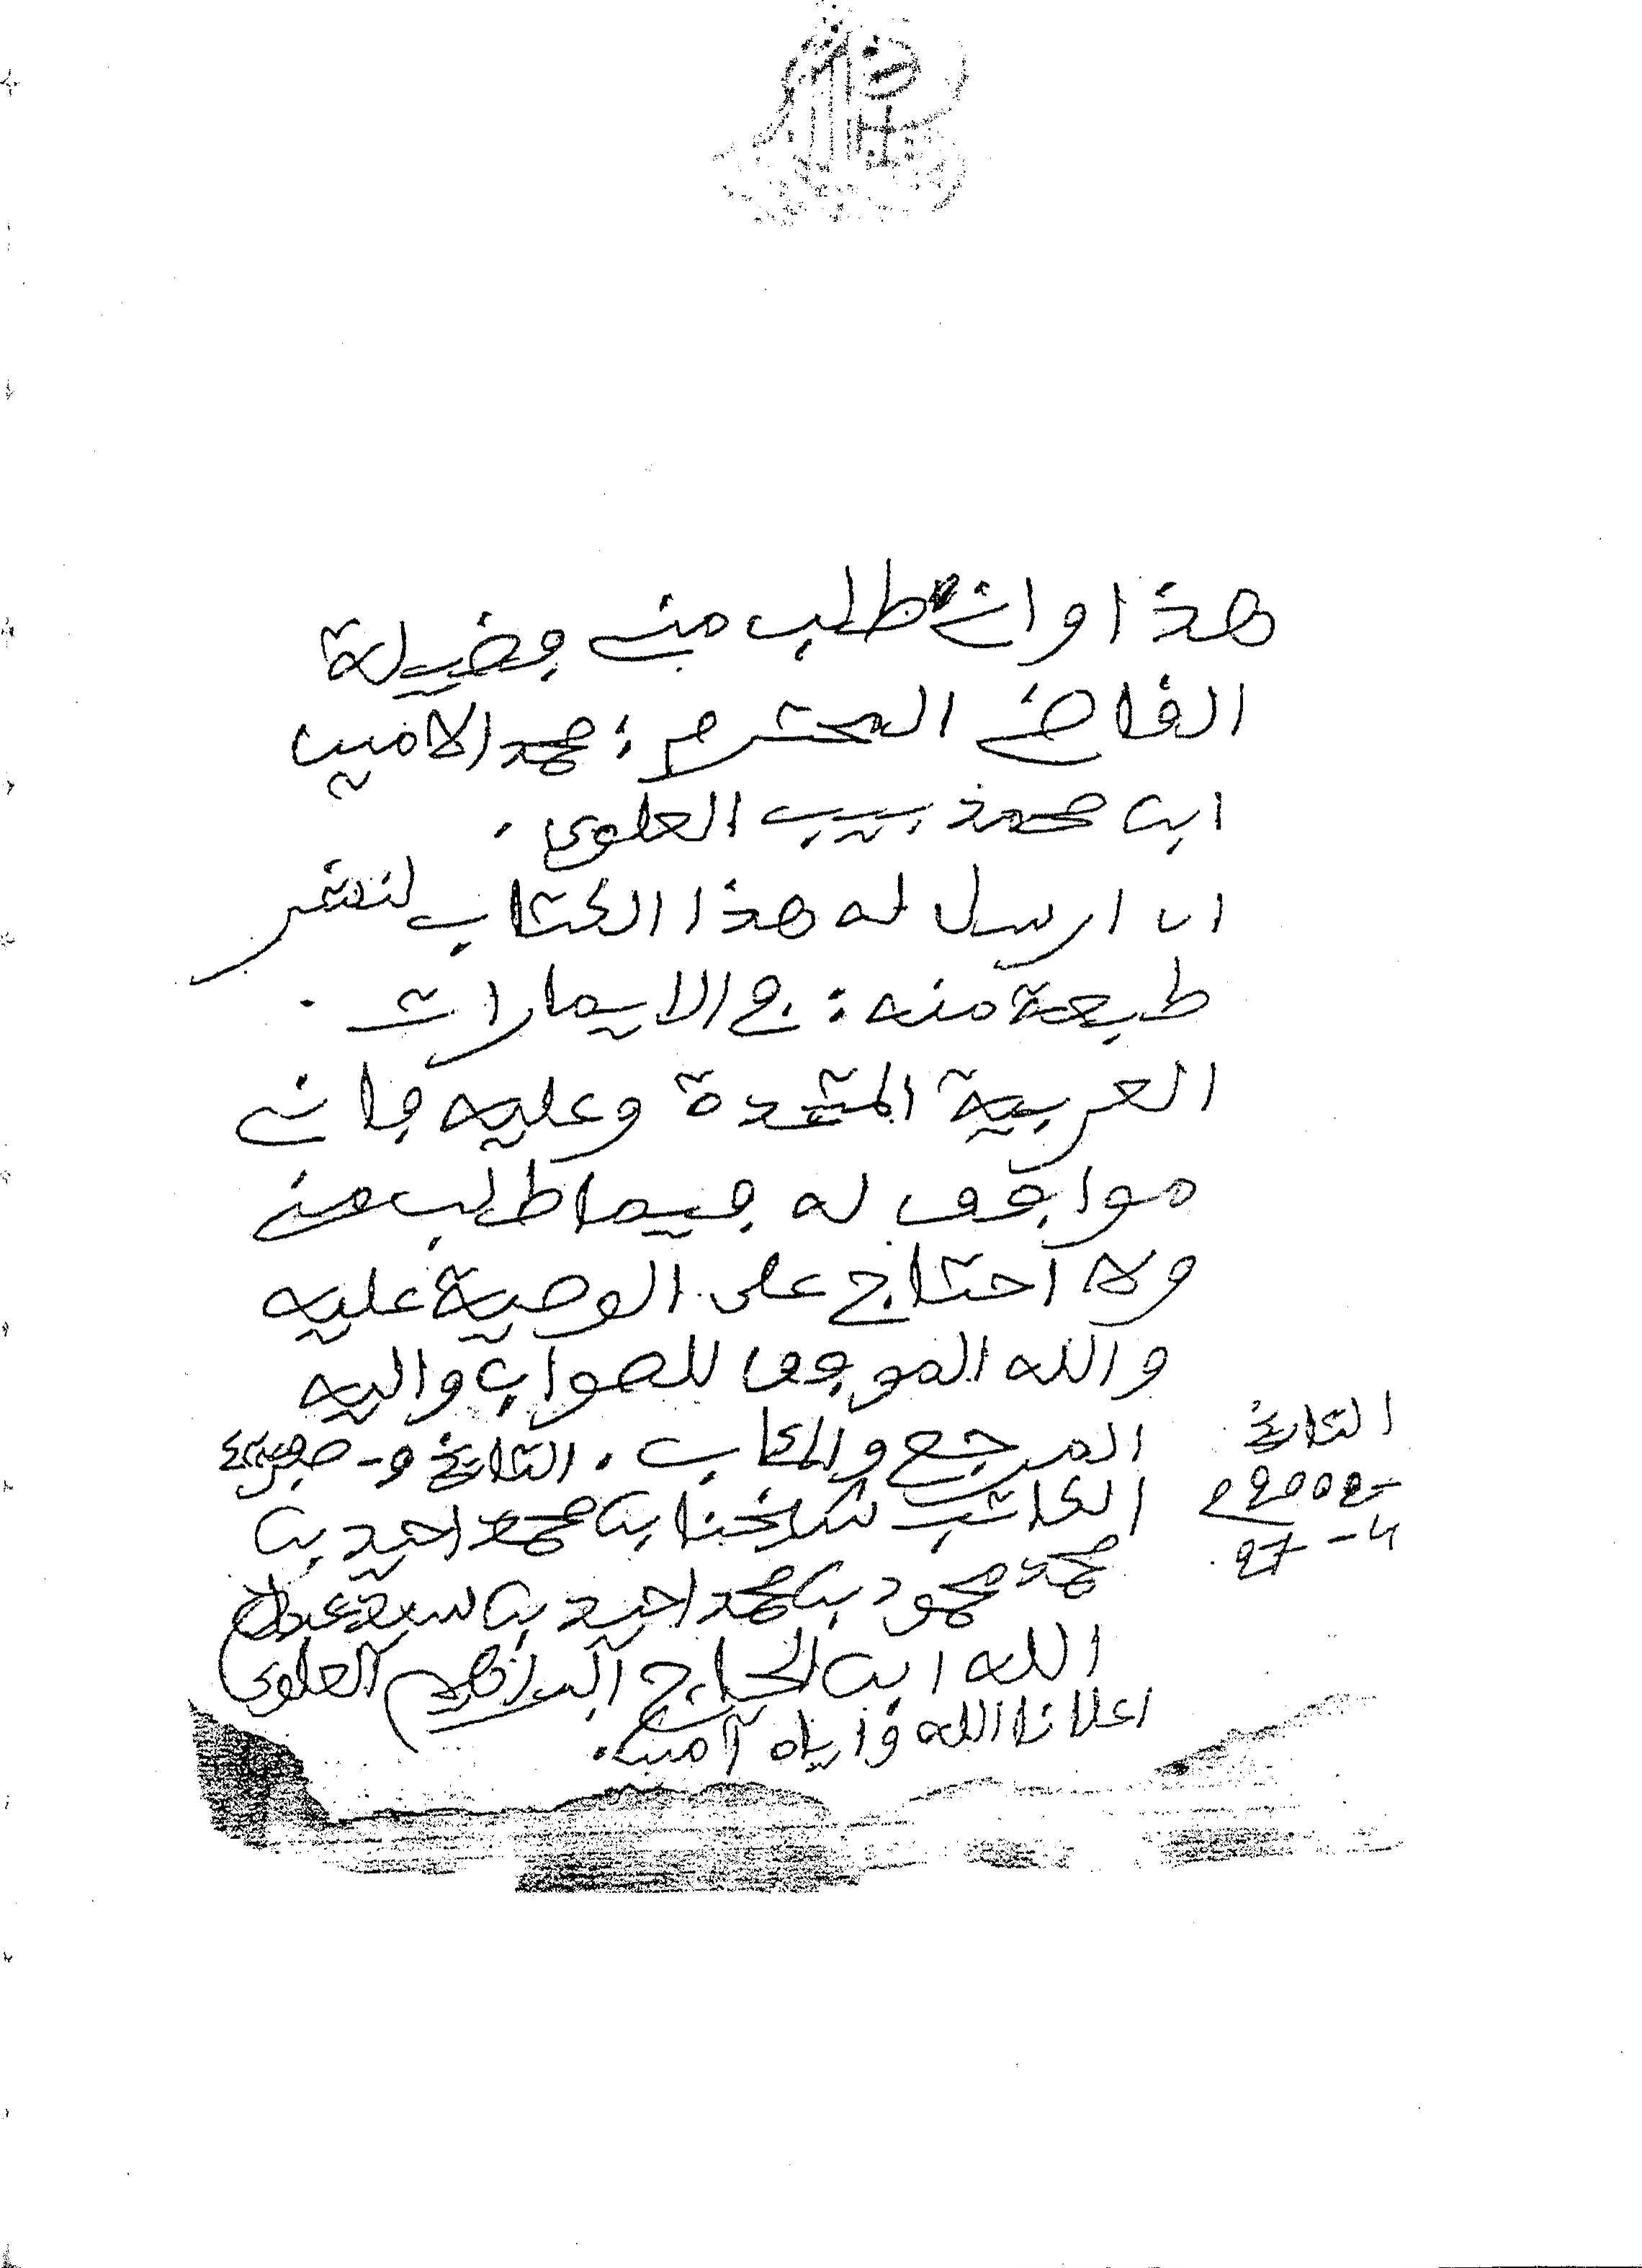 هذا وانى طلب منى فضيلة
القاضى المحترم : محمد الامين
ابن محمذ بيب العلوى .
ان ارسل له هذا الكتاب لننشر
طبعة منه : فى الايمارات .
العربية المتحدة وعليه فانى
موافق له فيما طلب منى
ولا احتاج على الوصية عليه
والله الموفق للصواب واليه
المرجع والمئاب . التاريخ 9 - صفر
التاريخ
الكاتب شيخنا بن محمد احيد بن
27 - 4
محمد محمود بن محمد احيد بن سيد عبد
الله ابن الحاج ابراهيم العلوى
اعلانا الله واياه آمين .